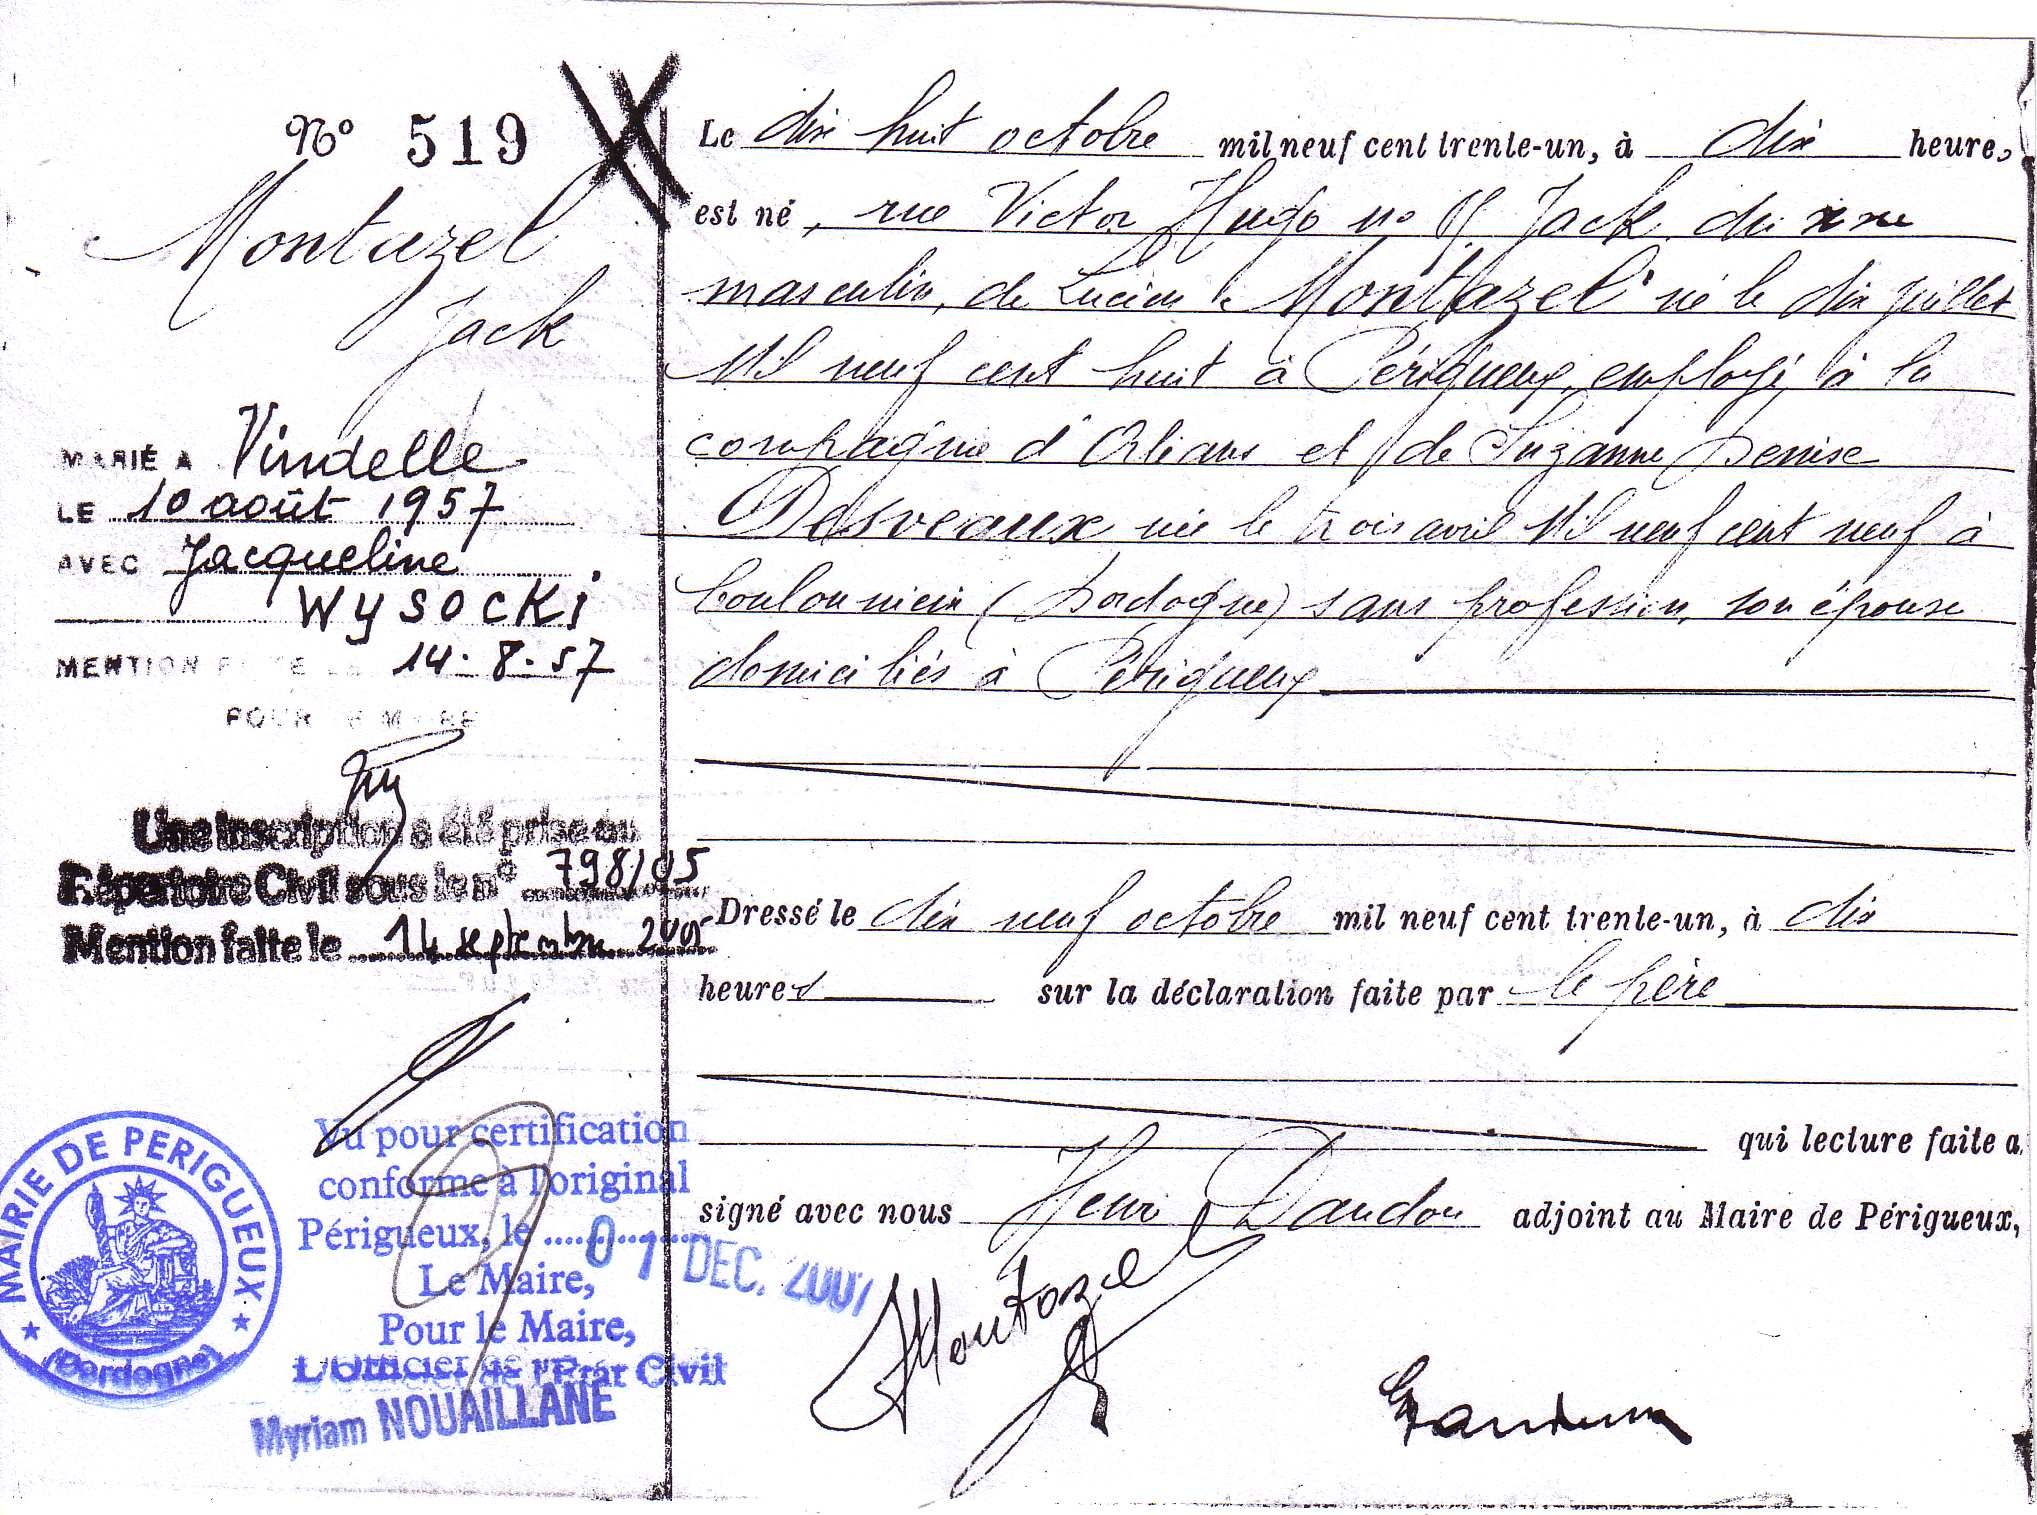 N° 519
Montazel
Jack
MARIÉ A Vindelle
LE 10 août 1957
AVEC Jacqueline
WYSOCKI
MENTION FAITE LE 14-8-57
POUR LE MAIRE
Une inscription a été prise au
Répertoire Civil sous le n° 798/05
Mention faite le 14 septembre 2005
Vu pour certification
conforme à l'original
Périgueux, le 07 DEC. 2007
Le Maire,
Pour le Maire,
L'Officier de l'Etat Civil
Myriam NOUAILLANE
MAIRIE DE PERIGUEUX
(Dordogne)
Le dix huit octobre mil neuf cent trente-un, à dix heures,
est né, rue Victor Hugo n° Jack, du sexe
masculin, de Lucien Montazel né le dix juillet
Mil neuf cent huit à Périgueux, employé à la
compagnie d'Orléans et de Suzanne Denise
Desveaux née le trois avril Mil neuf cent neuf à
(Dordogne) sans profession, son épouse
domiciliés à Périgueux
Dressé le dix neuf octobre mil neuf cent trente-un, à dix
heures sur la déclaration faite par le père
qui lecture faite a
signé avec nous Henri Dandou adjoint au Maire de Périgueux,
Montazel